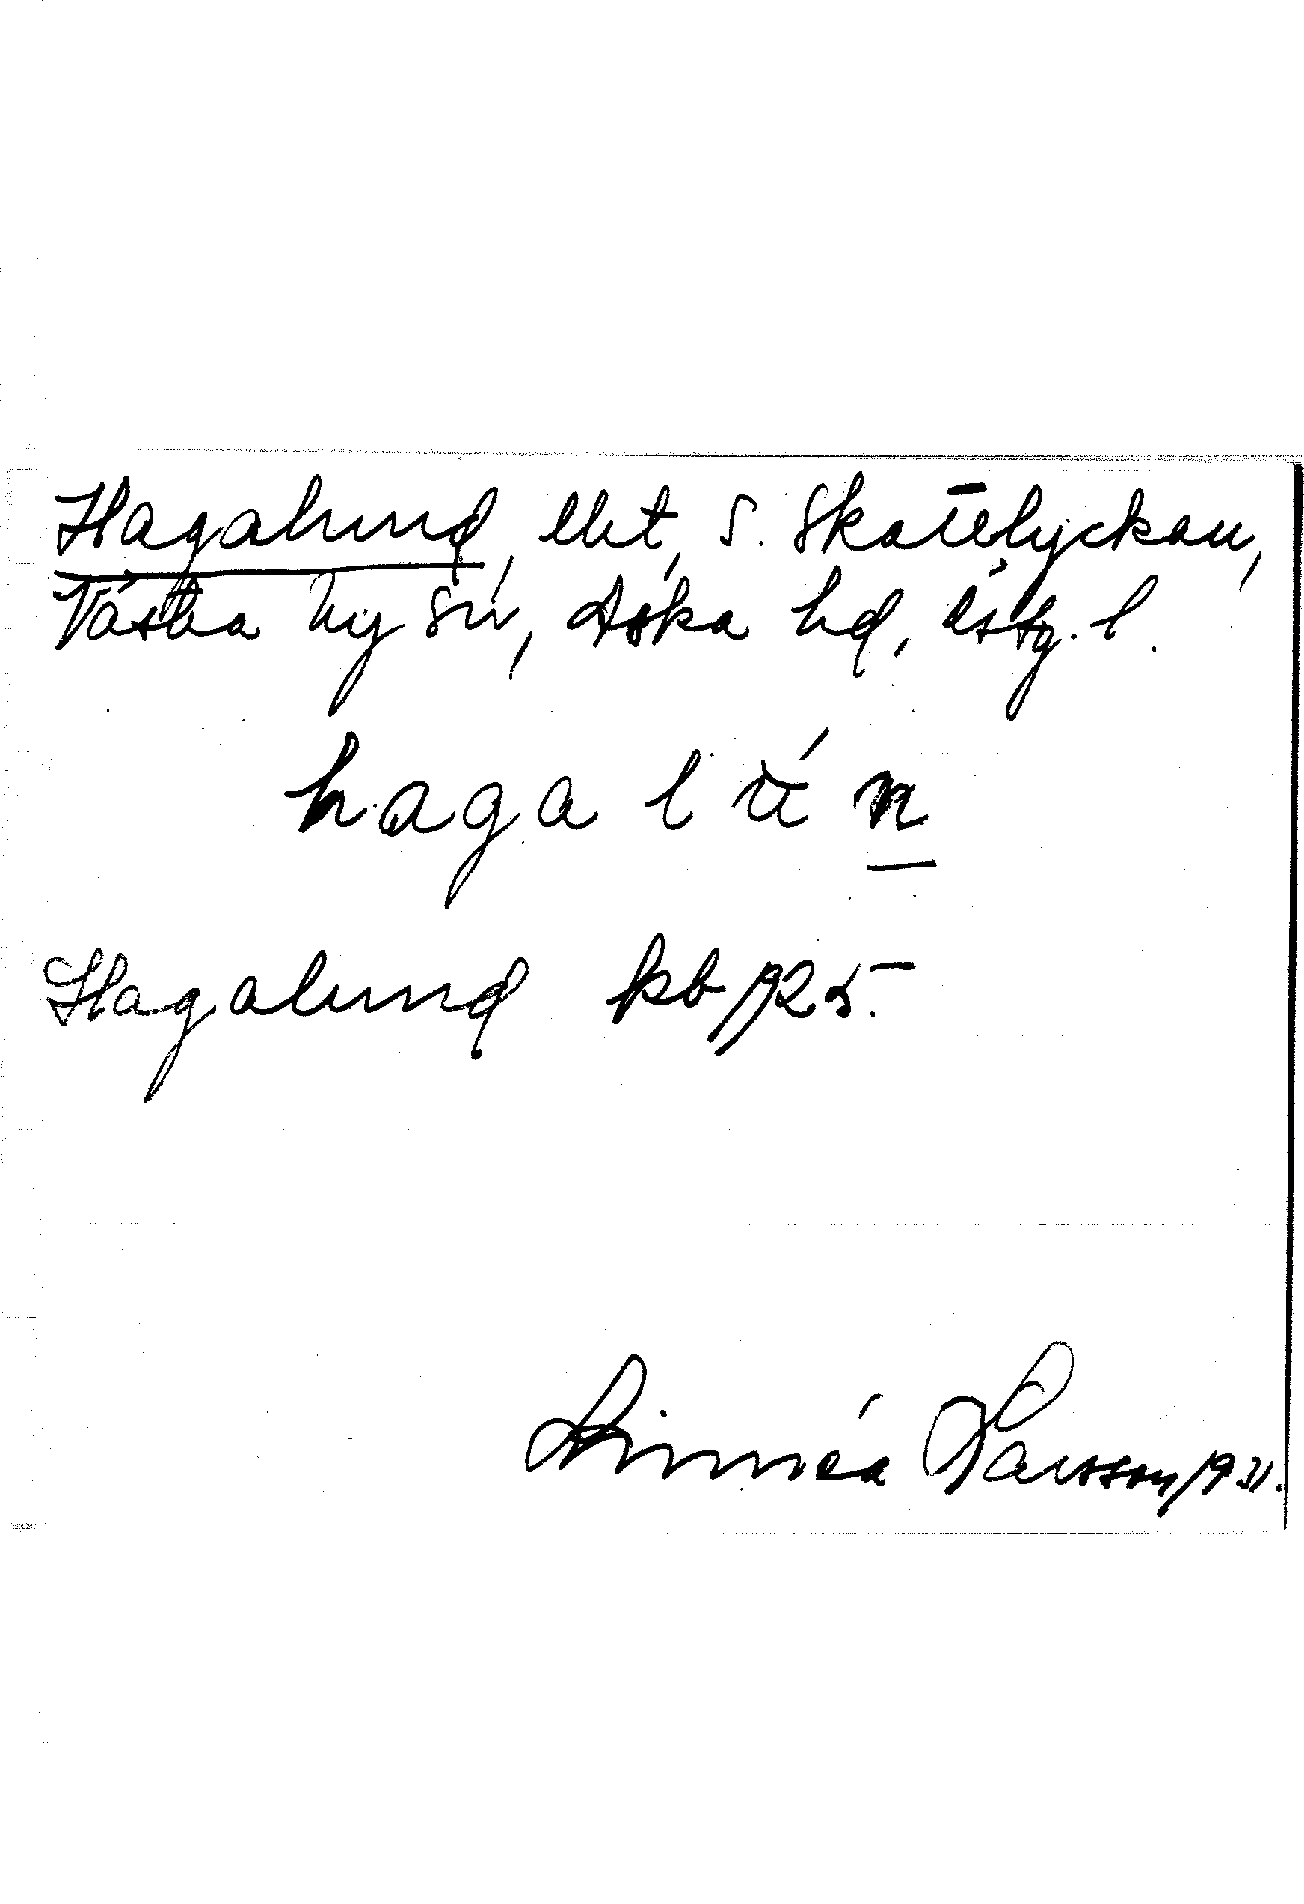 Hagalund, lht, S. Skattelyckan,
Västra Ny sn, Aska hd, Östg. l.
hagalún
Hagalund kb 1925.
Linnéa Larsson 1931.